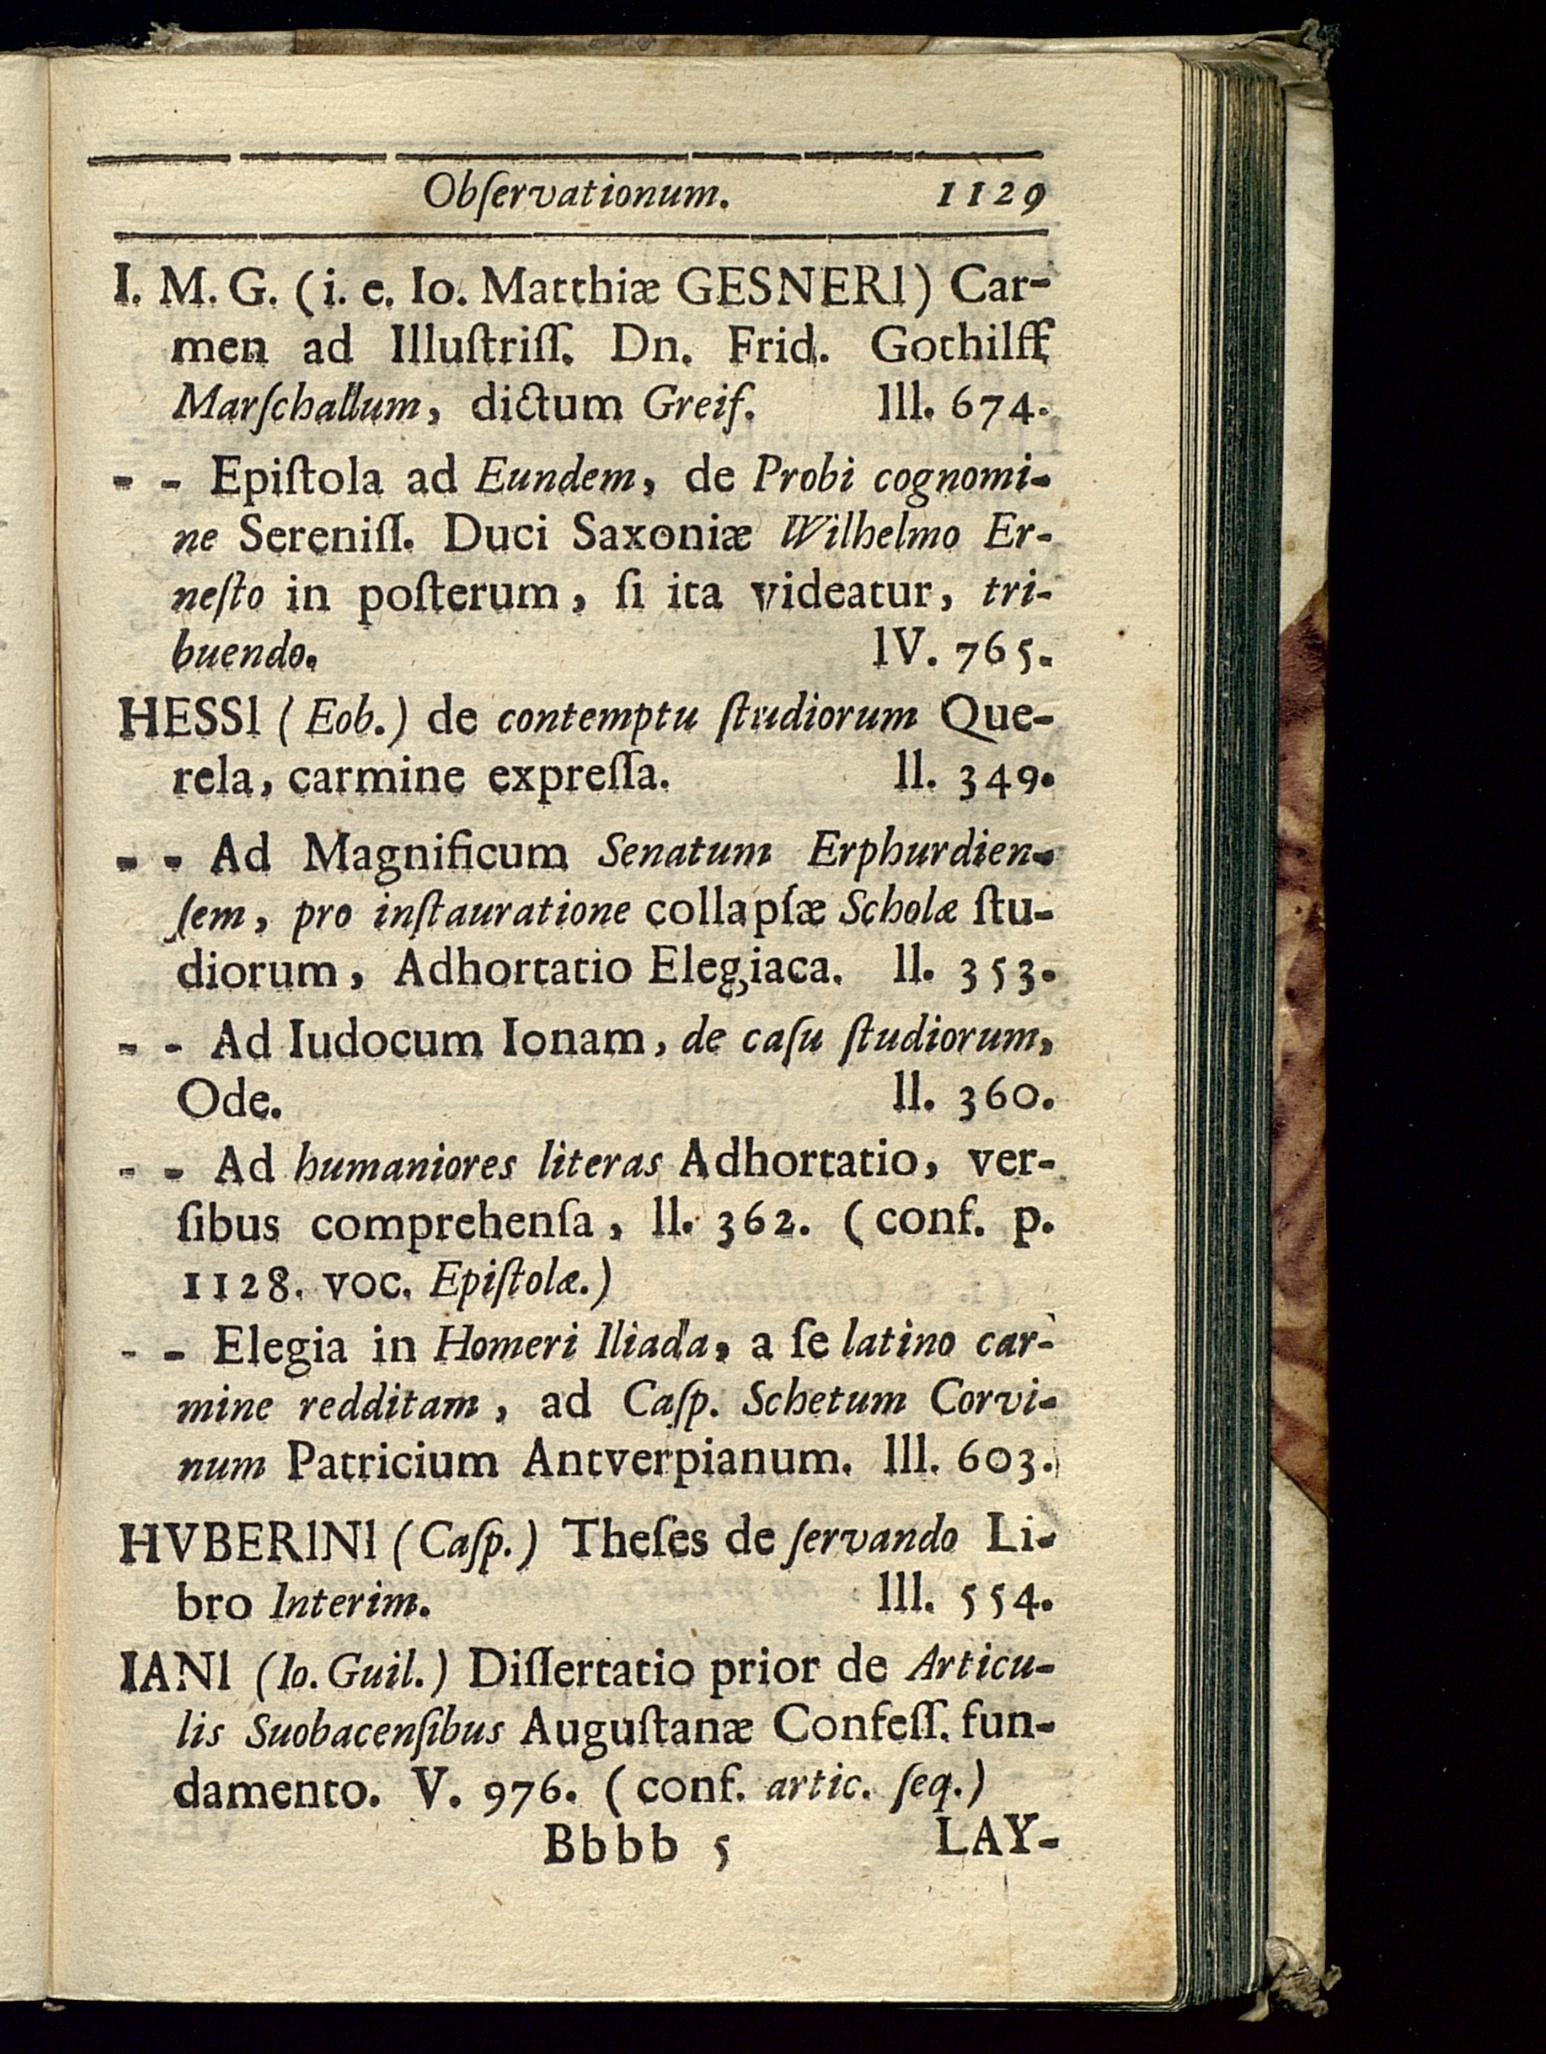 Obſervationum. 1129
I. M. G. (i. e. Io. Matthiæ GESNERI) Car-
men ad Illuſtriſſ. Dn. Frid. Gothilff
Marſchallum, dictum Greif. III. 674.
- - Epiſtola ad Eundem, de Probi cognomi-
ne Sereniſſ. Duci Saxoniæ Wilhelmo Er-
neſto in poſterum, ſi ita videatur, tri-
buendo. IV. 765.
HESSI (Eob.) de contemptu ſtudiorum Que-
rela, carmine expreſſa. II. 349.
- - Ad Magnificum Senatum Erphurdien-
ſem, pro inſtauratione collapſæ Scholæ ſtu-
diorum, Adhortatio Elegiaca. II. 353.
- - Ad Iudocum Ionam, de caſu ſtudiorum,
Ode. II. 360.
- - Ad humaniores literas Adhortatio, ver-
ſibus comprehenſa, II. 362. (conf. p.
1128. voc. Epiſtolæ.)
- - Elegia in Homeri Iliada, a ſe latino car-
mine redditam, ad Caſp. Schetum Corvi-
num Patricium Antverpianum. III. 603.
HVBERINI (Caſp.) Theſes de ſervando Li-
bro Interim. III. 554.
IANI (Io. Guil.) Diſſertatio prior de Articu-
lis Suobacenſibus Auguſtanæ Confeſſ. fun-
damento. V. 976. (conf. artic. ſeq.)
Bbbb 5 LAY-